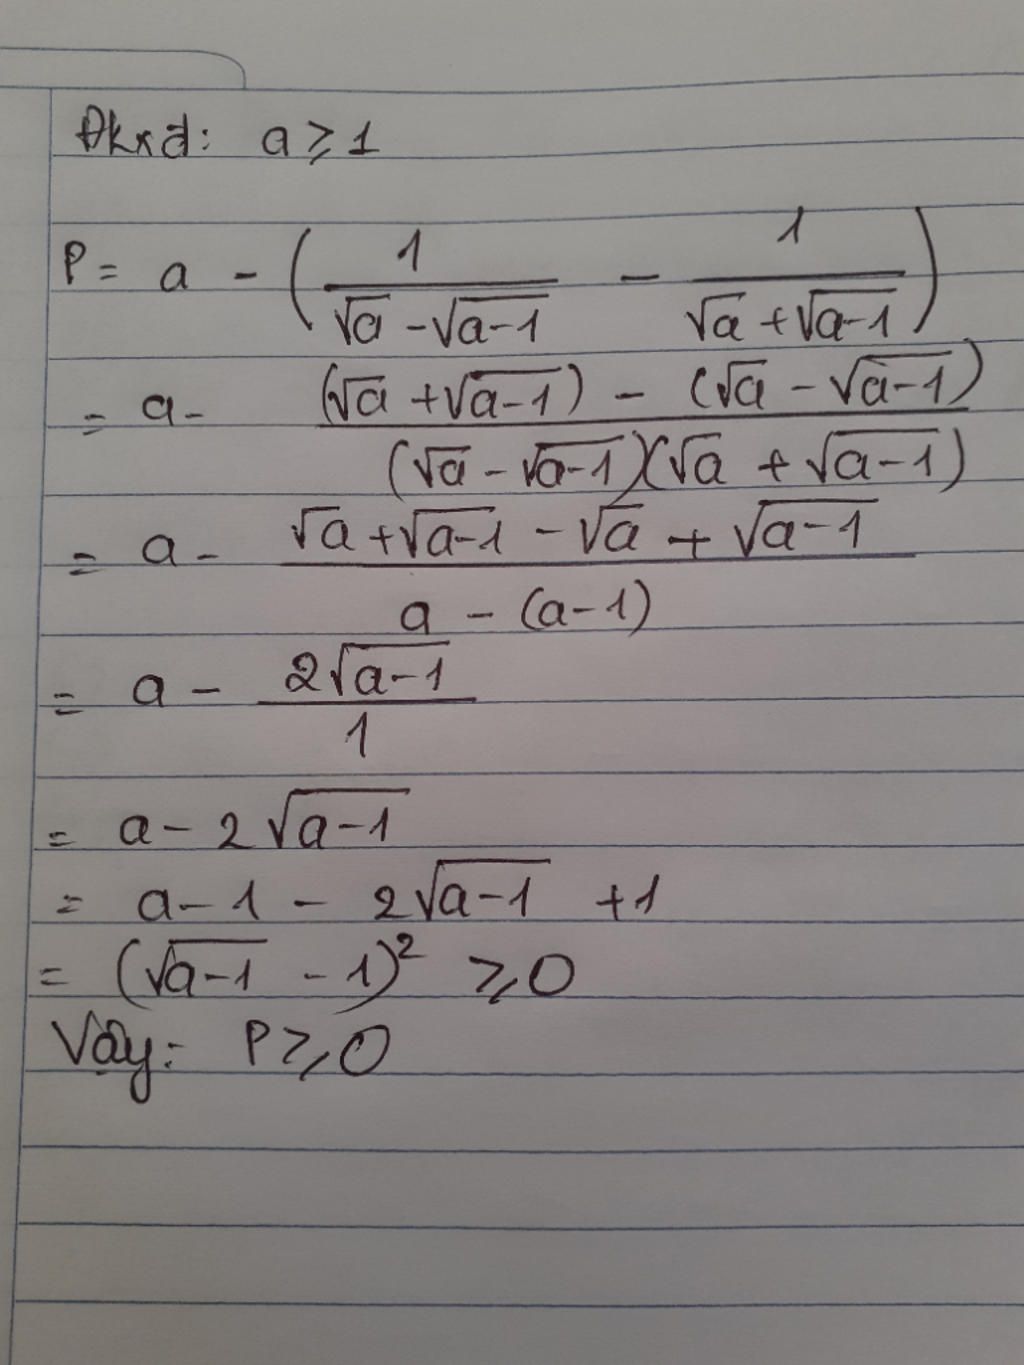 Đkxđ: a ≥ 1
P = a - ( 1/(√a - √(a-1)) - 1/(√a + √(a-1)) )
= a - ((√a + √(a-1)) - (√a - √(a-1)))/((√a - √(a-1))(√a + √(a-1)))
= a - (√a + √(a-1) - √a + √(a-1))/(a - (a-1))
= a - (2√(a-1))/1
= a - 2√(a-1)
= a-1 - 2√(a-1) +1
= (√(a-1) - 1)² ≥ 0
Vậy: P ≥ 0